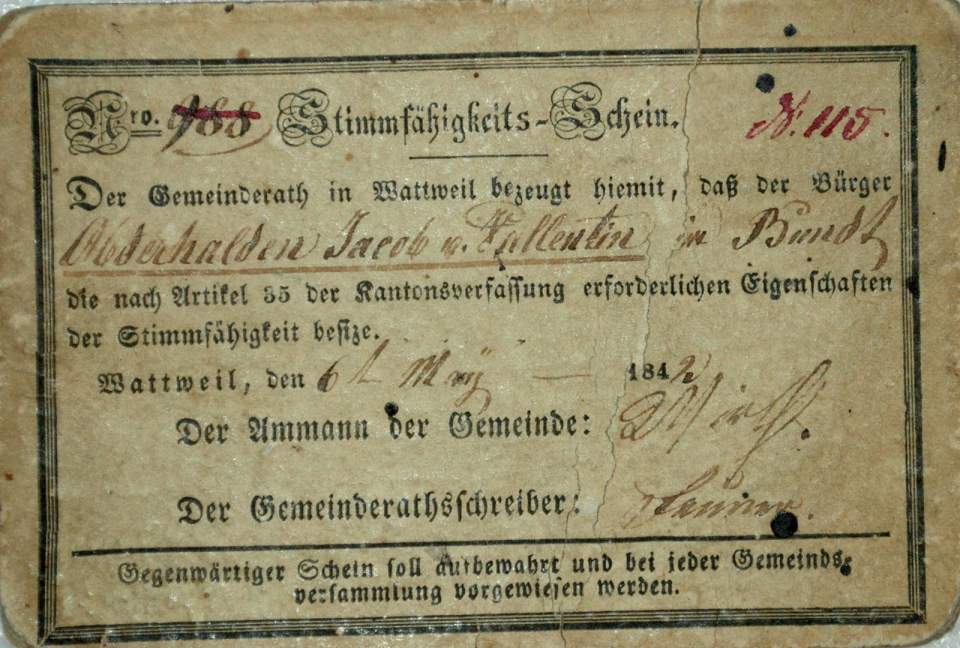 Nro. 988 Stimmfähigkeits-Schein. N. 115.
Der Gemeinderath in Wattweil bezeugt hiemit, daß der Bürger
Abderhalden Jacob v. Vallentin in Bundt
die nach Artikel 35 der Kantonsverfassung erforderlichen Eigenschaften
der Stimmfähigkeit besize.
Wattweil, den 6t May — 1842
Der Ammann der Gemeinde: Wirth.
Der Gemeinderathsschreiber:
Gegenwärtiger Schein soll aufbewahrt und bei jeder Gemeinds-
versammlung vorgewiesen werden.